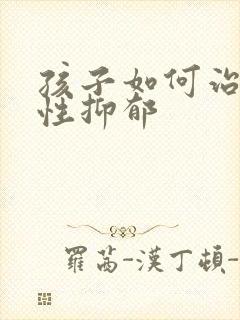 孩子如何治
性抑郁
羅茜-漢丁頓-